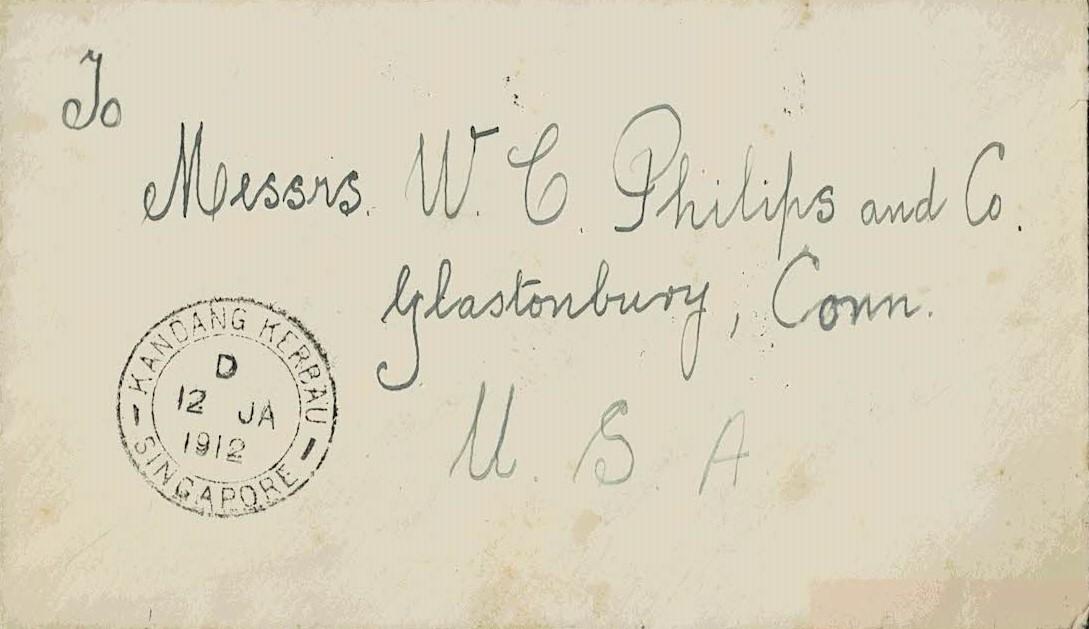 To
Messrs. W. C. Philips and Co.
Glastonbury, Conn.
U. S. A
KANDANG KERBAU
D
12 JA
1912
SINGAPORE